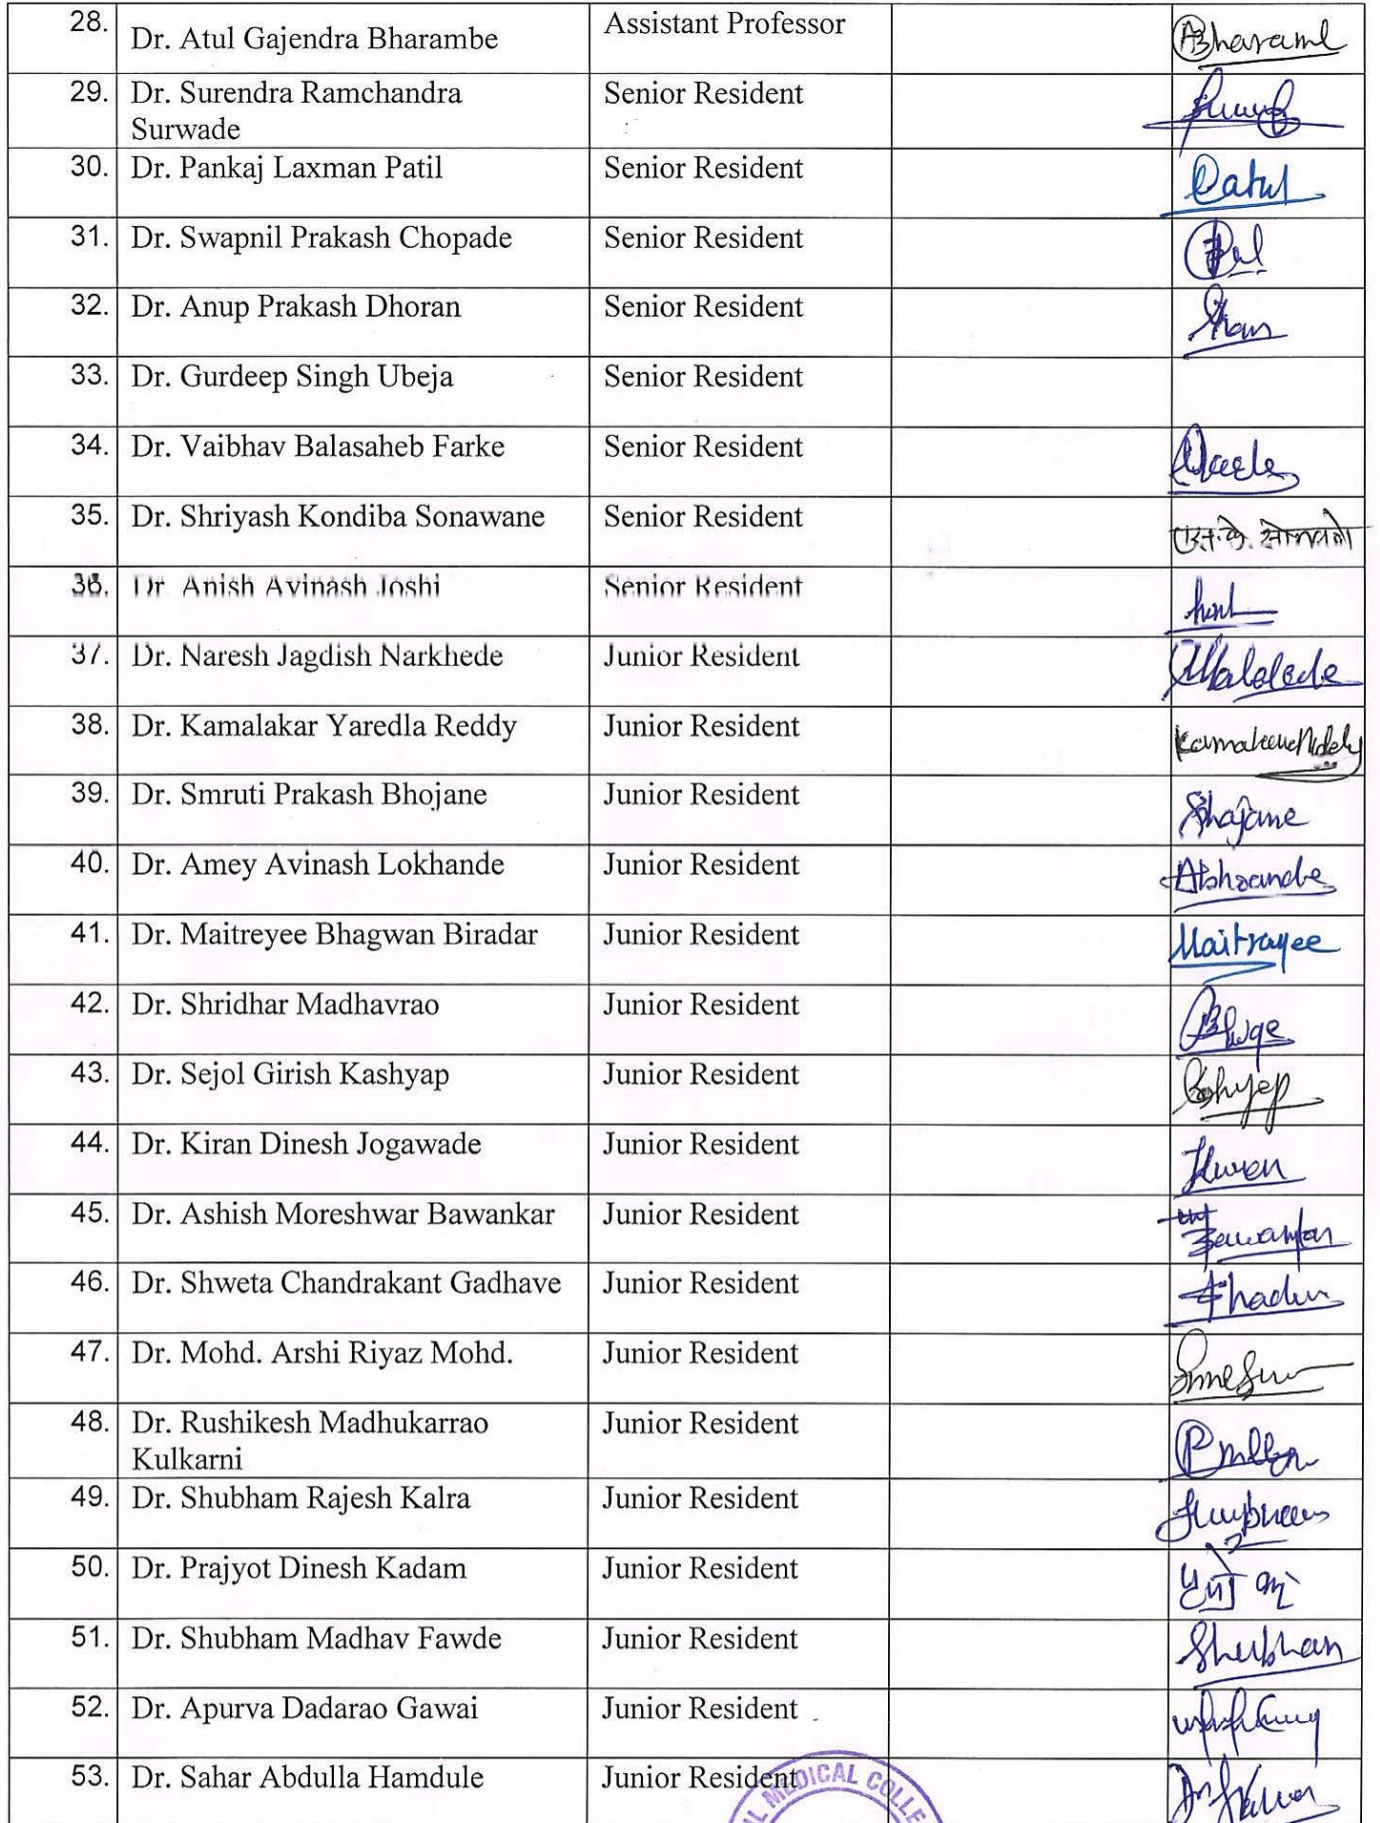 28. Dr. Atul Gajendra Bharambe Assistant Professor
29. Dr. Surendra Ramchandra Senior Resident
Surwade
30. Dr. Pankaj Laxman Patil Senior Resident
31. Dr. Swapnil Prakash Chopade Senior Resident
32. Dr. Anup Prakash Dhoran Senior Resident
33. Dr. Gurdeep Singh Ubeja Senior Resident
34. Dr. Vaibhav Balasaheb Farke Senior Resident
35. Dr. Shriyash Kondiba Sonawane Senior Resident
36. Dr. Anish Avinash Joshi Senior Resident
37. Dr. Naresh Jagdish Narkhede Junior Resident
38. Dr. Kamalakar Yaredla Reddy Junior Resident
39. Dr. Smruti Prakash Bhojane Junior Resident
40. Dr. Amey Avinash Lokhande Junior Resident
41. Dr. Maitreyee Bhagwan Biradar Junior Resident Maitrayee
42. Dr. Shridhar Madhavrao Junior Resident
43. Dr. Sejol Girish Kashyap Junior Resident
44. Dr. Kiran Dinesh Jogawade Junior Resident
45. Dr. Ashish Moreshwar Bawankar Junior Resident
46. Dr. Shweta Chandrakant Gadhave Junior Resident
47. Dr. Mohd. Arshi Riyaz Mohd. Junior Resident
48. Dr. Rushikesh Madhukarrao Junior Resident
Kulkarni
49. Dr. Shubham Rajesh Kalra Junior Resident
50. Dr. Prajyot Dinesh Kadam Junior Resident
51. Dr. Shubham Madhav Fawde Junior Resident
52. Dr. Apurva Dadarao Gawai Junior Resident
53. Dr. Sahar Abdulla Hamdule Junior Resident
MEDICAL COLLE